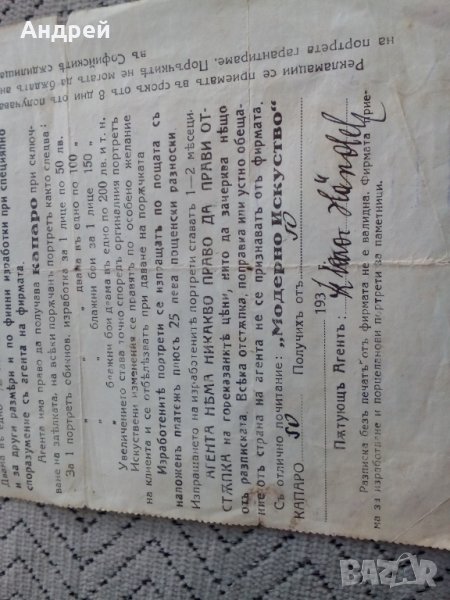 Андрей
и за други размѣри и по финни изработки при специялно
споразумение съ агента на фирмата.
Агента има право да получава капаро при сключ-
ване на сдѣлката, на всѣки поржчанъ портретъ както следва:
За 1 портретъ обикнов. изработка за 1 лице по 50 лв.
" " " " двама въ едно по 100 "
" " " блажни бои за 1 лице 150 "
" " " блажни бои двама въ едно по 200 лв. и т. н.
Увеличението става точно споредъ оргиналния портретъ
Искуствени изменения се правятъ по особено желание
на клиента и се отбѣлезватъ при даване на поржчката
Изработените портрети се изпращатъ по пощата съ
наложенъ платежъ плюсъ 25 лева пощенски разноски
Изпращането на изработенитѣ портрети ставатъ 1—2 месеци.
АГЕНТА НѢМА НИКАКВО ПРАВО ДА ПРАВИ ОТ-
СТѪПКА на горексазнитѣ цѣни, нито да зачерква нѣщо
отъ разписката. Всѣка отстѫпка, поправка или устно обеща-
ние отъ страна на агента не се признаватъ отъ фирмата.
Съ отлично почитание: „Модерно Искуство"
КАПАРО 50 Получихъ отъ: 50
193
Пѫтующъ Агентъ:
Разписка безъ печатъ отъ фирмата не е валидна. Фирмата прие-
ма за изработване и порцеланови портрети за паметници.
Рекламации се приематъ въ срокъ отъ 8 дни отъ получава
на портрета гарантираме. Поръчкитѣ не могатъ да бѫдатъ ан
въ Софийскитѣ сѫдилища
BAZAR